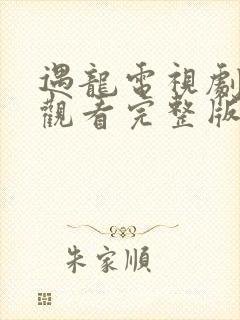 遇龍電視劇
觀看完整版
朱家順